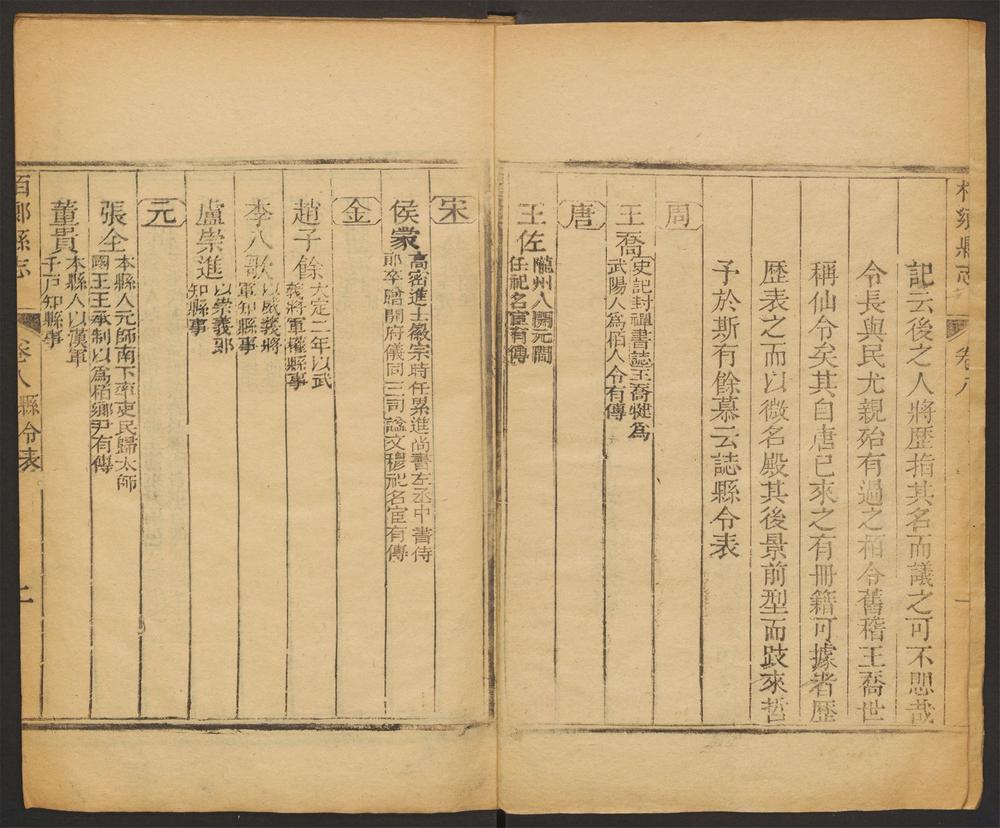 柏鄉縣志
卷八
一
記云後之人將歷指其名而議之可不思哉
令長與民尤親殆有過之栢令舊稽王喬世
稱仙令矣其自唐已來之有冊籍可據者歷
歷表之而以微名殿其後景前型而跂來哲
予於斯有餘慕云誌縣令表
周
王喬史記封禪書誌王喬犍為
武陽人為栢人令有傳
唐
王佐隴州人開元間
任祀名宦有傳
宋
侯蒙高密進士徽宗時任累進尚書左丞中書侍
郎卒贈開府儀同三司諡文穆祀名宦有傳
金
趙子餘大定二年以武
義將軍權縣事
李八歌以威義將
軍知縣事
盧崇進以崇義郎
知縣事
元
張全本縣人元師南下率吏民歸太師
國王王承制以為栢鄉尹有傳
董貴本縣人以漢軍
千戸知縣事
百鄉縣志
卷八
縣令表
二